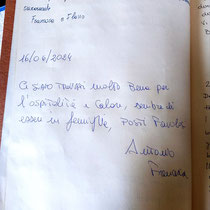 Francesca e
16/04/2024
Ci siamo trovati molto bene per
l'ospitalità e calore, sembra di
essere in famiglia, posti favolosi
Antonio
Francesca